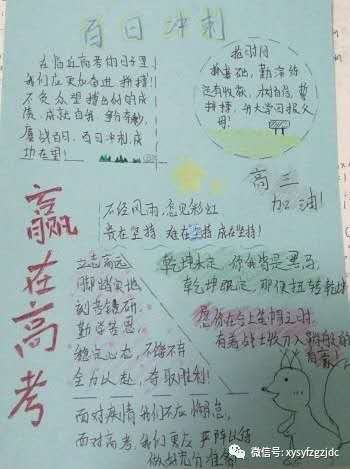 百日冲刺
在临近高考的日子里
我们应更加奋进 拼搏!
不负众望 搏出好的成
绩,成就自我 争分夺秒,
鏖战百日,百日冲刺,成
功在望!
抢时间
抓基础,勤演练
还有收获,树自信,要
拼搏,升大学回报父
母!
高三
加油!
不经风雨,怎见彩虹
贵在坚持 难在坚持 成在坚持!
赢在高考
立志高远
脚踏实地
刻苦钻研
勤学苦思
稳定心态,不馁不弃
全力以赴,夺取胜利!
乾坤未定,你我皆是黑马
乾坤既定,那便扭转乾坤
愿你在合上笔帽之时
有着战士收刀入鞘
面对疫情我们不应惧怠,
面对高考,我们更应 严阵以待
做好充分准备
微信号: xysyfzgzjdc